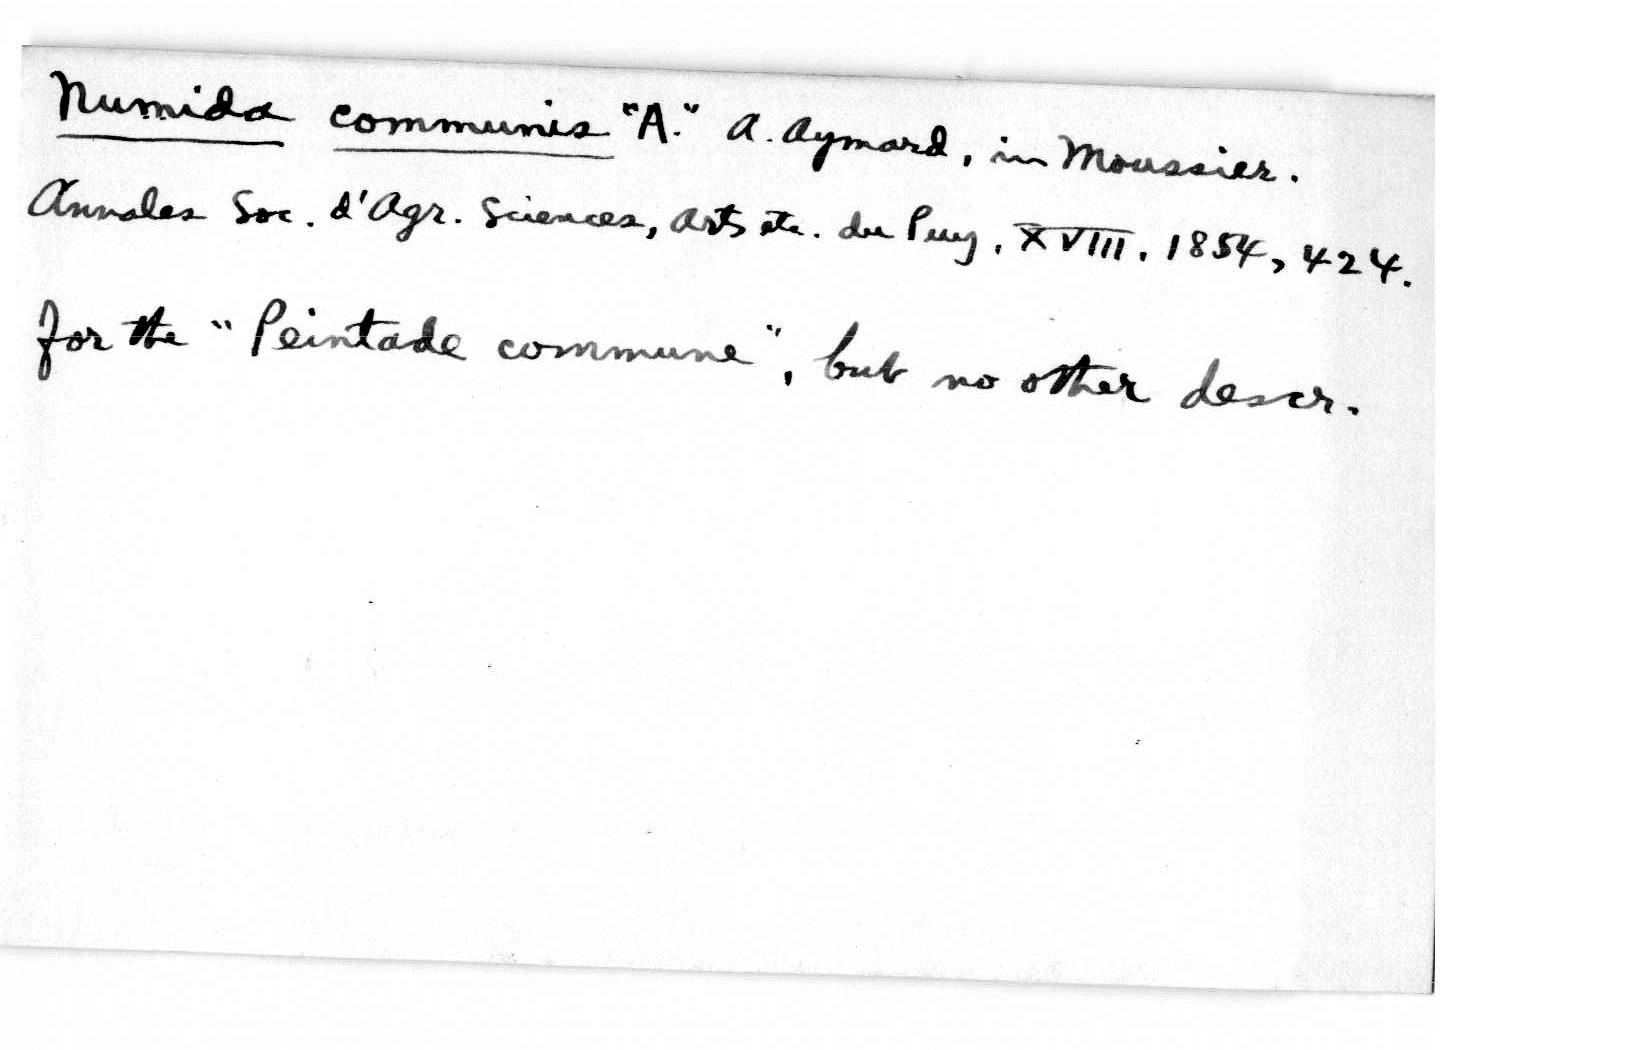 Numida communis "A." A. Aymard, in Moussier.
Annales Soc. d'Agr. Sciences, Arts etc. du Puy, XVIII, 1854, 424.
for the "Peintade commune", but no other descr.